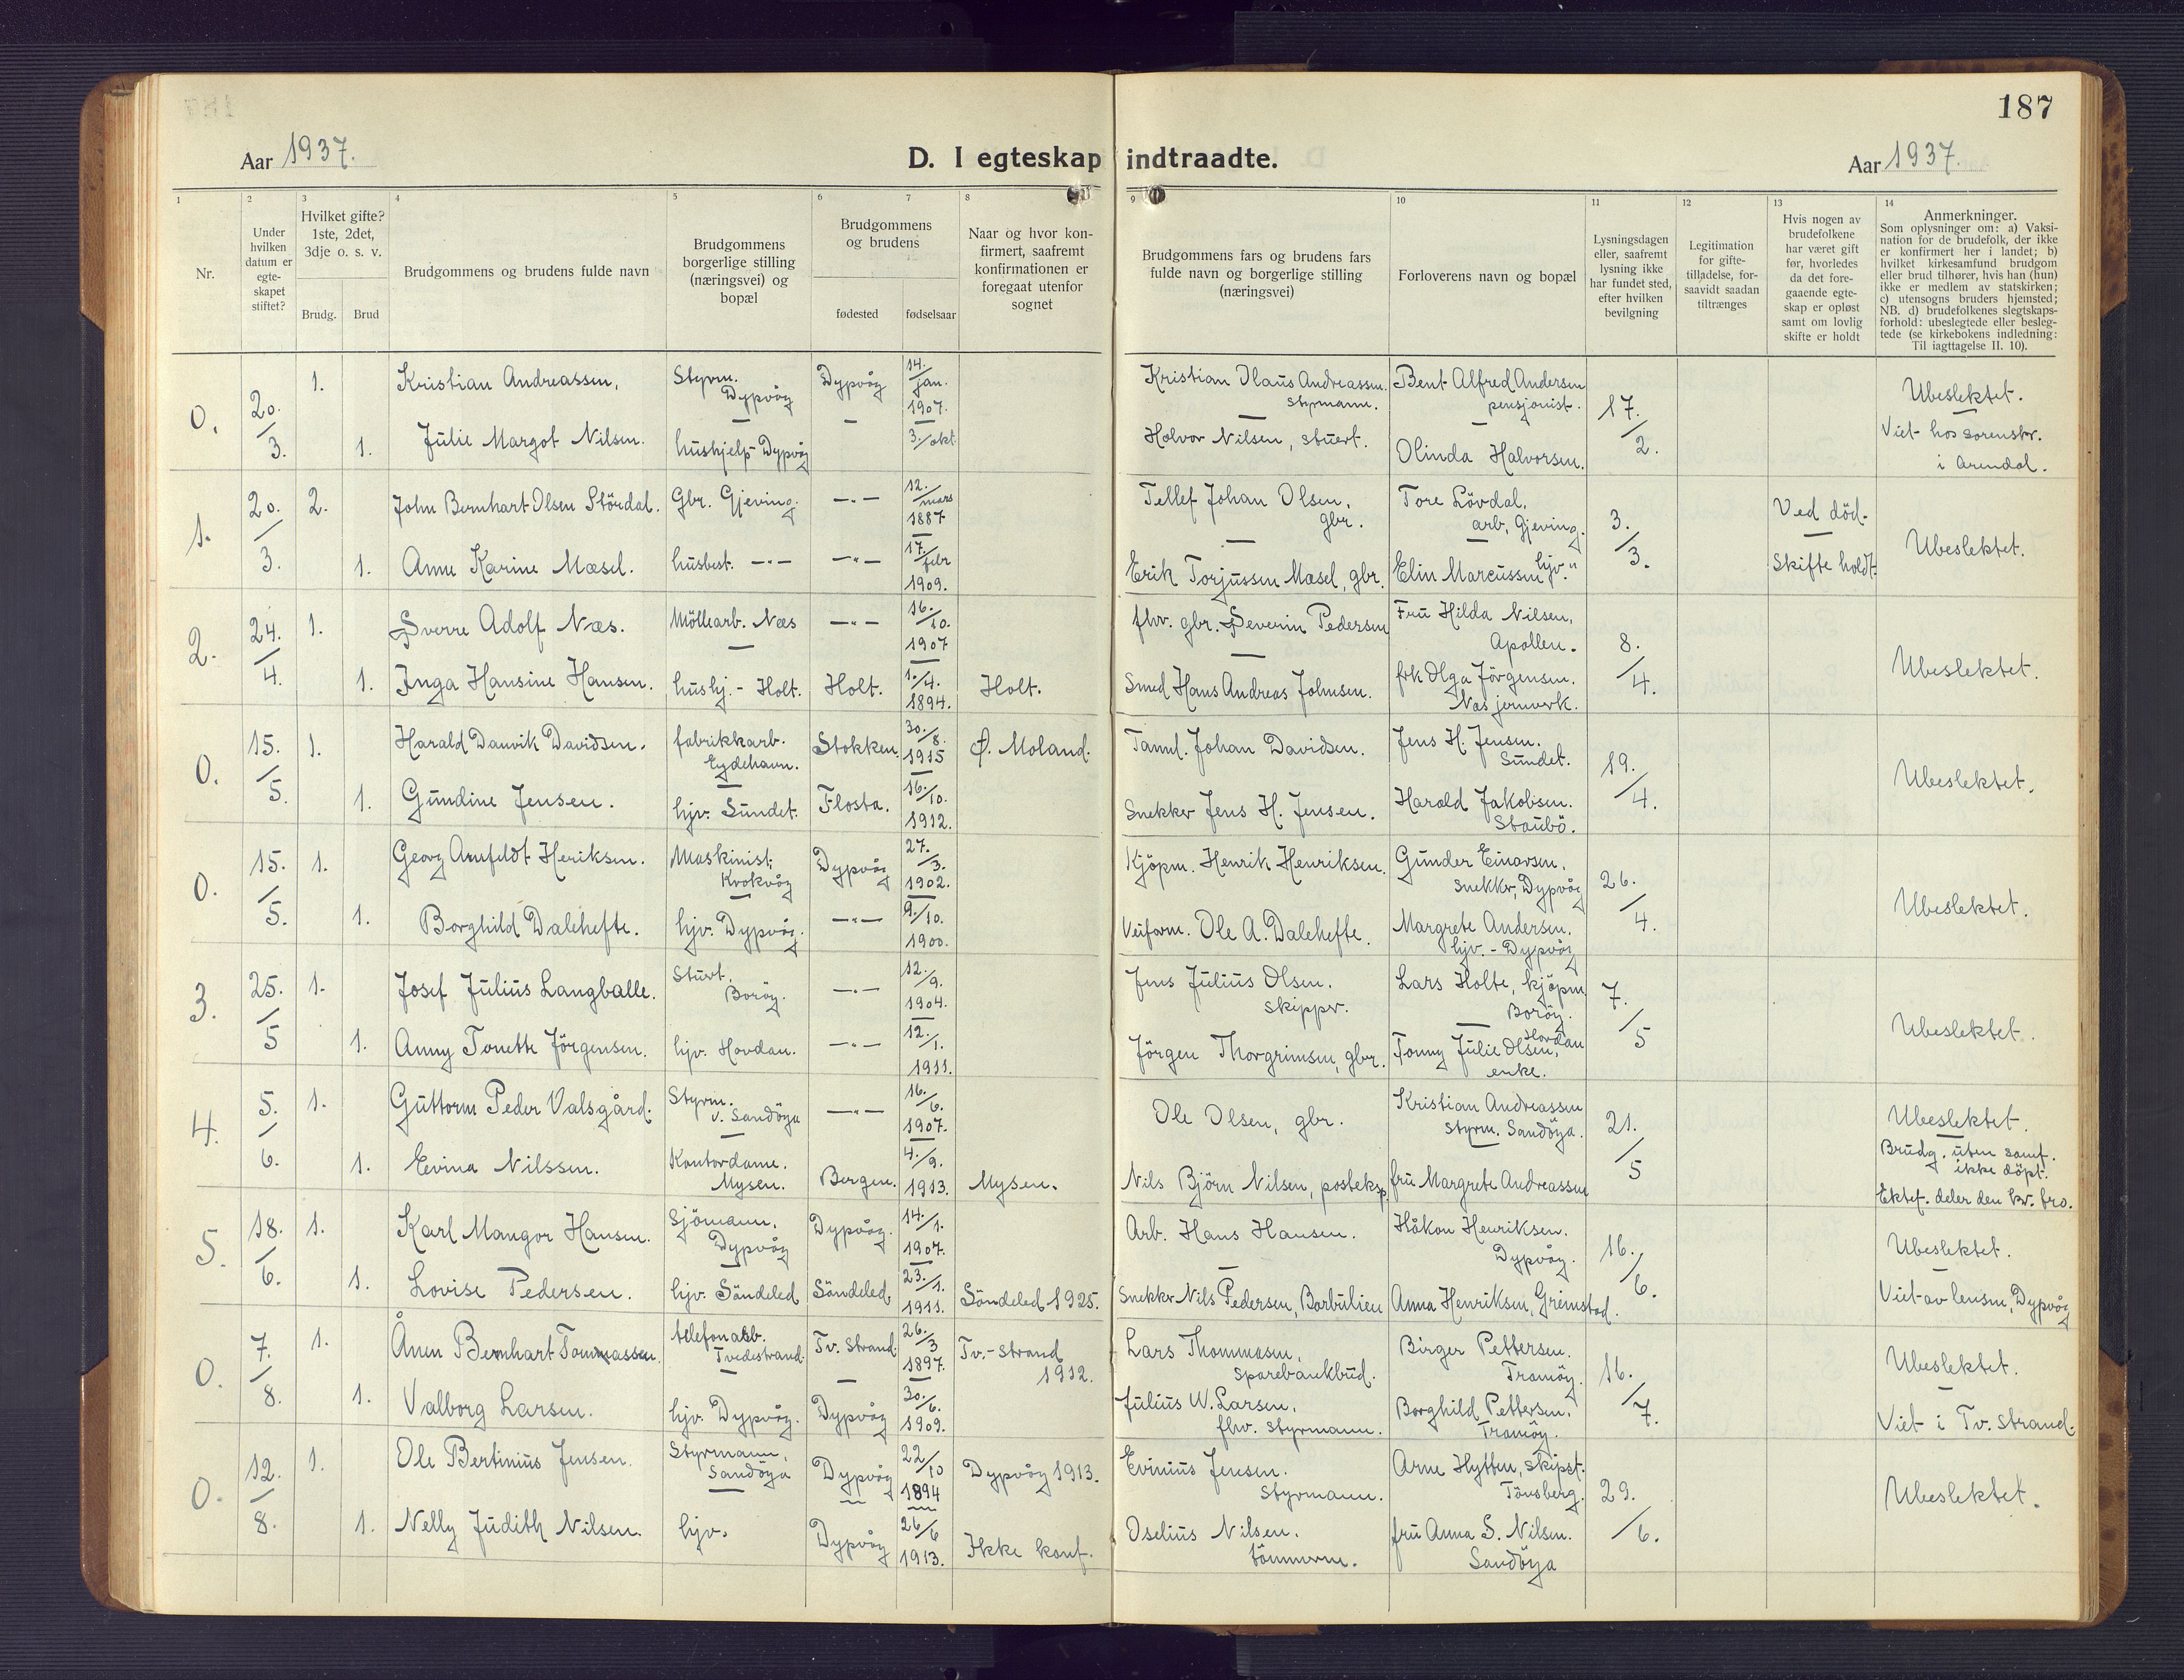 187
Aar 1937.
D. I egteskap indtraadte.
Aar 1937.
1 2 3 4 5 6 7 8 9 10 11 12 13 14
Nr.
Under hvilken datum er egte-skapet stiftet?
Hvilket gifte? 1ste, 2det, 3dje o. s. v.
Brudg. Brud
Brudgommens og brudens fulde navn
Brudgommens borgerlige stilling (næringsvei) og bopæl
Brudgommens og brudens
fødested fødselsaar
Naar og hvor kon-firmert, saafremt konfirmationen er foregaat utenfor sognet
Brudgommens fars og brudens fars fulde navn og borgerlige stilling (næringsvei)
Forloverens navn og bopæl
Lysningsdagen eller, saafremt lysning ikke har fundet sted, efter hvilken bevilgning
Legitimation for gifte-tilladelse, for-saavidt saadan tiltrænges
Hvis nogen av brudefolkene har været gift før, hvorledes da det fore-gaaende egte-skap er opløst samt om lovlig skifte er holdt
Anmerkninger.
Som oplysninger om: a) Vaksi-nation for de brudefolk, der ikke er konfirmert her i landet; b) hvilket kirkesamfund brudgom eller brud tilhører, hvis han (hun) ikke er medlem av statskirken; c) utensogns bruders hjemsted; NB. d) brudefolkenes slegtskaps-forhold: ubeslegtede eller besleg-tede (se kirkebokens indledning: Til iagttagelse II. 10).
0. 20./3. 1. Kristian Andreassen, Styrm. Dypvåg Dypvåg 14./jan. 1907. Kristian Olaus Andreassen. styrmann. Bent Alfred Andersen pensjonist. 17./2. Ubeslektet.
1. Julie Margot Nilsen. hushjelp Dypvåg — 3./okt. Halvor Nilsen, stuert. Olinda Halvorsen. Viet hos sorenskr. i Arendal.
1. 20./3. 2. John Bernhart Olsen Stördal. Gbr. Gjeving. —"— 12./mars 1887 Tellef Johan Olsen, gbr. Tore Lövdal, arb, Gjeving. 3./3. Ved död. Ubeslektet.
1. Anne Karine Mæsel. husbest. —"— —"— 17./febr 1909. Erik Torjussen Mæsel, gbr. Elin Marcussen hjv. " Skifte holdt.
2. 24./4. 1. Sverre Adolf Næs. Möllearb. Næs —"— 16./10. 1907 fhv. gbr. Severin Pedersen Fru Hilda Nilsen, Apollen. 8./4. Ubeslektet.
1. Inga Hansine Hansen. hushj. - Holt. Holt. 1./4. 1894. Holt. Smed Hans Andreas Johnsen. frk Olga Jörgensen. Næs jernverk.
0. 15./5. 1. Harald Danvik Davidsen. fabrikkarb. Eydehavn. Stokken. 30./8. 1915 Ø. Moland. Tannl. Johan Davidsen. Jens H. Jensen. Sundet. 19./4. Ubeslektet.
1. Gundine Jensen. hjv. Sundet. Flosta. 16./10. 1912. Snekker Jens H. Jensen. Harald Jakobsen. Staubö.
0. 15./5. 1. Georg Arnfeldt Heriksen. Maskinist, Krokvåg Dypvåg 27./3. 1902. Kjöpm. Henrik Henriksen. Gunder Einarsen. snekker, Dypvåg 26./4. Ubeslektet.
1. Borghild Dalehefte. hjv. Dypvåg. —"— 9./10. 1900. Veiform. Ole A. Dalehefte. Margrete Andersen. hjv. - Dypvåg
3. 25./5 1. Josef Julius Langballe. Stuert. Boröy. —"— 12./9. 1904. Jens Julius Olsen. skipper. Lars Holte, kjöpm. Boröy. 7./5 Ubeslektet.
1. Anny Tonette Jörgensen. hjv. Hovdan. —"— 12./1. 1911. Jörgen Thorgrimsen, gbr. Tonny Julie Olsen, Hovdan enke.
4. 5./6. 1. Guttorm Peder Valsgård. Styrm. v. Sandöya —"— 16./6. 1907. Ole Olsen, gbr. Kristian Andreassen styrm. Sandöya. 21./5 Ubeslektet.
1. Evina Nilssen. Kontordame. Mysen. Bergen. 4./9. 1913. Mysen. Nils Björn Nilsen, posteksp. fru Margrete Andreassen Brudg. uten samf. ikke döpt. Ektef. deler den kr. tro.
5. 18./6. 1. Karl Mangor Hansen. Sjömann. Dypvåg Dypvåg. 14./1. 1907. Arb. Hans Hansen. Håkon Henriksen. Dypvåg. 16./6. Ubeslektet.
1. Lovise Pedersen. hjv. Söndeled Söndeled. 23./1. 1911. Söndeled 1925. Snekker Nils Pedersen, Barbulien Anna Henriksen, Grimstad. Viet av lensm, Dypvåg
0. 7./8. 1. Ånen Bernhart Tommassen. telefonarb. Tvedestrand. Tv. Strand. 26./3 1897. Tv.-strand 1912. Lars Thommasen, sparebankbud. Birger Pettersen. Tromöy. 16./7. Ubeslektet.
1. Valborg Larsen. hjv. Dypvåg. Dypvåg 30./6. 1909. Julius W. Larsen, fhv. styrmann. Borghild Pettersen. Tromöy. Viet i Tv. Strand.
0. 12./8. 1. Ole Bertinius Jensen. Styrmann, Sandöya Dypvåg 22/10 1894 Dypvåg 1913. Evinius Jensen. Styrmann. Arne Hytten, skipst. Tönsberg. 29./6. Ubeslektet.
1. Nelly Judith Nilsen. hjv. Dypvåg 26/6 1913. Ikke konf. Oselius Nilsen. tömmerm. fru Anna S. Nilsen. Sandöya